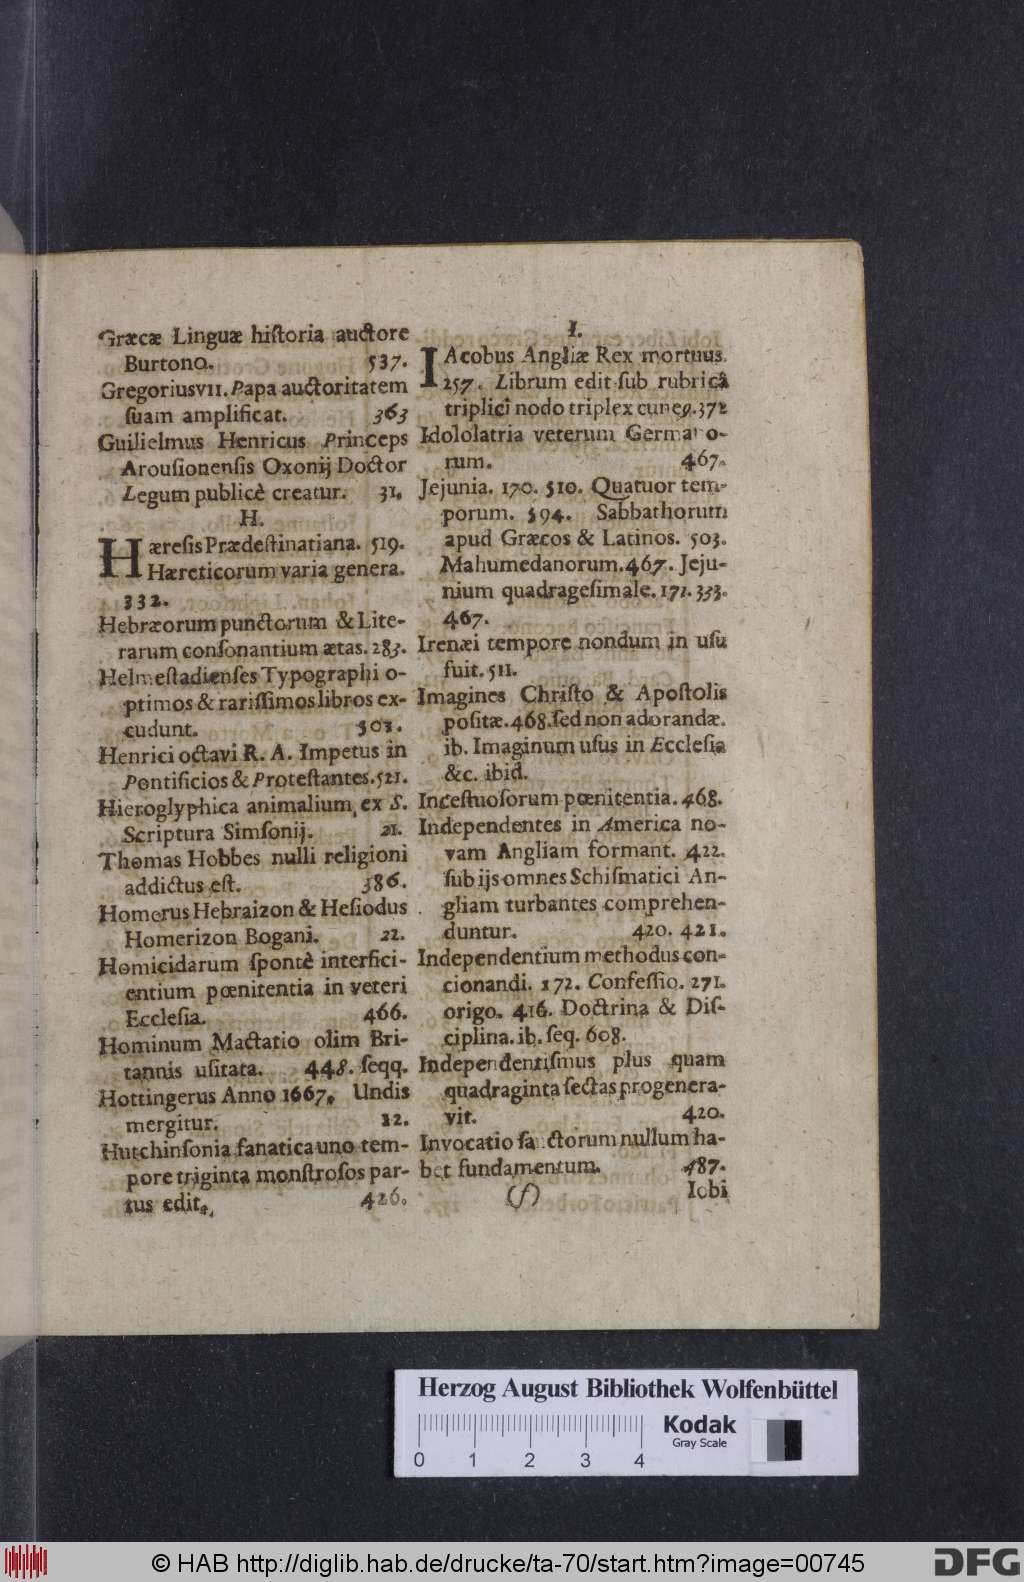 Græcæ Linguæ hiſtoria auctore
Burtono. 537.
Gregorius VII. Papa auctoritatem
ſuam amplificat. 363
Guilielmus Henricus Princeps
Arouſionenſis Oxonij Doctor
Legum publicè creatur. 31.
H.
Hæreſis Prædeſtinatiana. 519.
Hæreticorum varia genera.
332.
Hebræorum punctorum & Lite-
rarum conſonantium ætas. 283.
Helmeſtadienſes Typographi o-
ptimos & rariſſimos libros ex-
cudunt. 503.
Henrici octavi R. A. Impetus in
Pontificios & Proteſtantes. 521.
Hieroglyphica animalium, ex S.
Scriptura Simſonij. 21.
Thomas Hobbes nulli religioni
addictus eſt. 386.
Homerus Hebraizon & Heſiodus
Homerizon Bogani. 22.
Homicidarum ſpontè interfici-
entium pœnitentia in veteri
Eccleſia. 466.
Hominum Mactatio olim Bri-
tannis uſitata. 448. ſeqq.
Hottingerus Anno 1667. Undis
mergitur. 12.
Hutchinſonia fanatica uno tem-
pore triginta monſtroſos par-
tus edit. 426.
I.
IAcobus Angliæ Rex mortuus.
257. Librum edit ſub rubricâ
triplici nodo triplex cuneq. 372
Idololatria veterum Germano-
rum. 467.
Jejunia. 170. 510. Quatuor tem-
porum. 594. Sabbathorum
apud Græcos & Latinos. 503.
Mahumedanorum. 467. Jeju-
nium quadrageſimale. 171. 333.
467.
Irenæi tempore nondum in uſu
fuit. 511.
Imagines Chriſto & Apoſtolis
poſitæ. 468. ſed non adorandæ.
ib. Imaginum uſus in Eccleſia
&c. ibid.
Inceſtuoſorum pœnitentia. 468.
Independentes in America no-
vam Angliam formant. 422.
ſub ijs omnes Schiſmatici An-
gliam turbantes comprehen-
duntur. 420. 421.
Independentium methodus con-
cionandi. 172. Confeſſio. 271.
origo. 416. Doctrina & Diſ-
ciplina. ib. ſeq. 608.
Independentiſmus plus quam
quadraginta ſectas progenera-
vit. 420.
Invocatio ſanctorum nullum ha-
bet fundamentum. 487.
(f) Iobi
Herzog August Bibliothek Wolfenbüttel
0 1 2 3 4
Kodak
Gray Scale
© HAB http://diglib.hab.de/drucke/ta-70/start.htm?image=00745
DFG